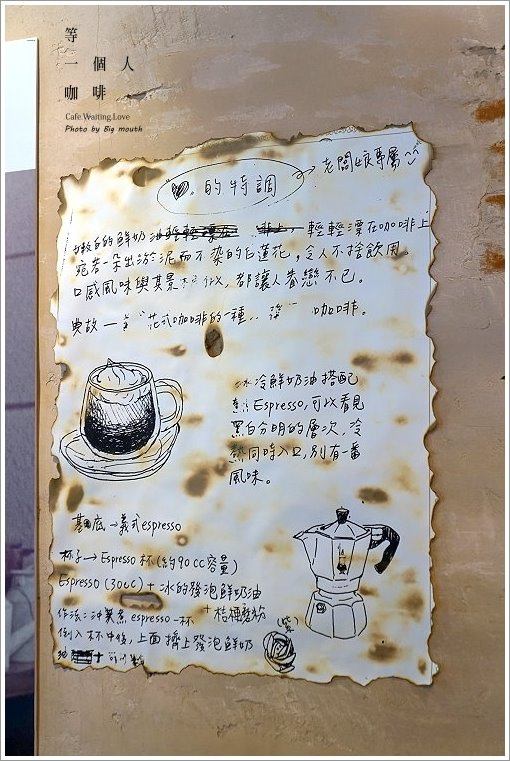 等
一個人
咖啡
Cafe.Waiting.Love
Photo by Big mouth
的特調
老闆娘專屬^^
嫩白的鮮奶油 輕輕漂在咖啡上
宛若一朵出淤泥而不染的白蓮花,令人不捨飲用。
口感風味與其景 似,都讓人眷戀不已。
典故一 花式咖啡的一種 咖啡。
冰冷鮮奶油搭配
Espresso,可以看見
黑白分明的層次,冷
熱同時入口,別有一番
風味。
基底→義式espresso
杯子→Espresso杯(約90cc容量)
Espresso (30cc)+冰的發泡鮮奶油
+桔梗磨粉
作法:沖煮 espresso一杯
(紫)
倒入杯中後,上面擠上發泡鮮奶
油